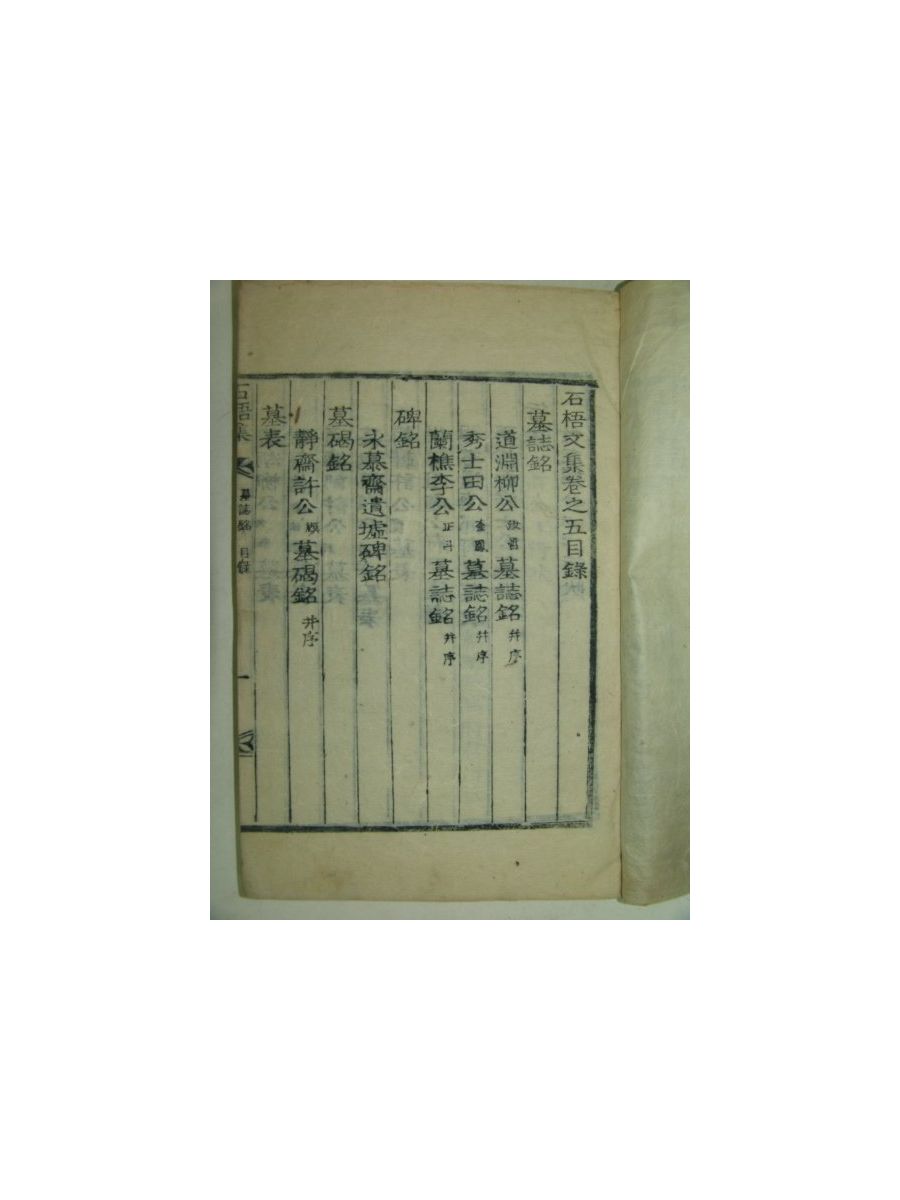 石梧文集卷之五目錄
墓誌銘
道淵柳公墓誌銘 并序
秀士田公墓誌銘 并序
蘭樵李公墓誌銘 并序
碑銘
永慕齋遺墟碑銘
墓碣銘
靜齋許公墓碣銘 并序
墓表
石梧集 墓誌銘 目錄 一